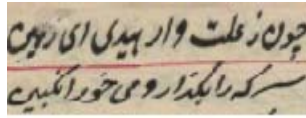 چون ز علت وارهیدی ای رهین
سرکه را بگذار و می خور انگبین